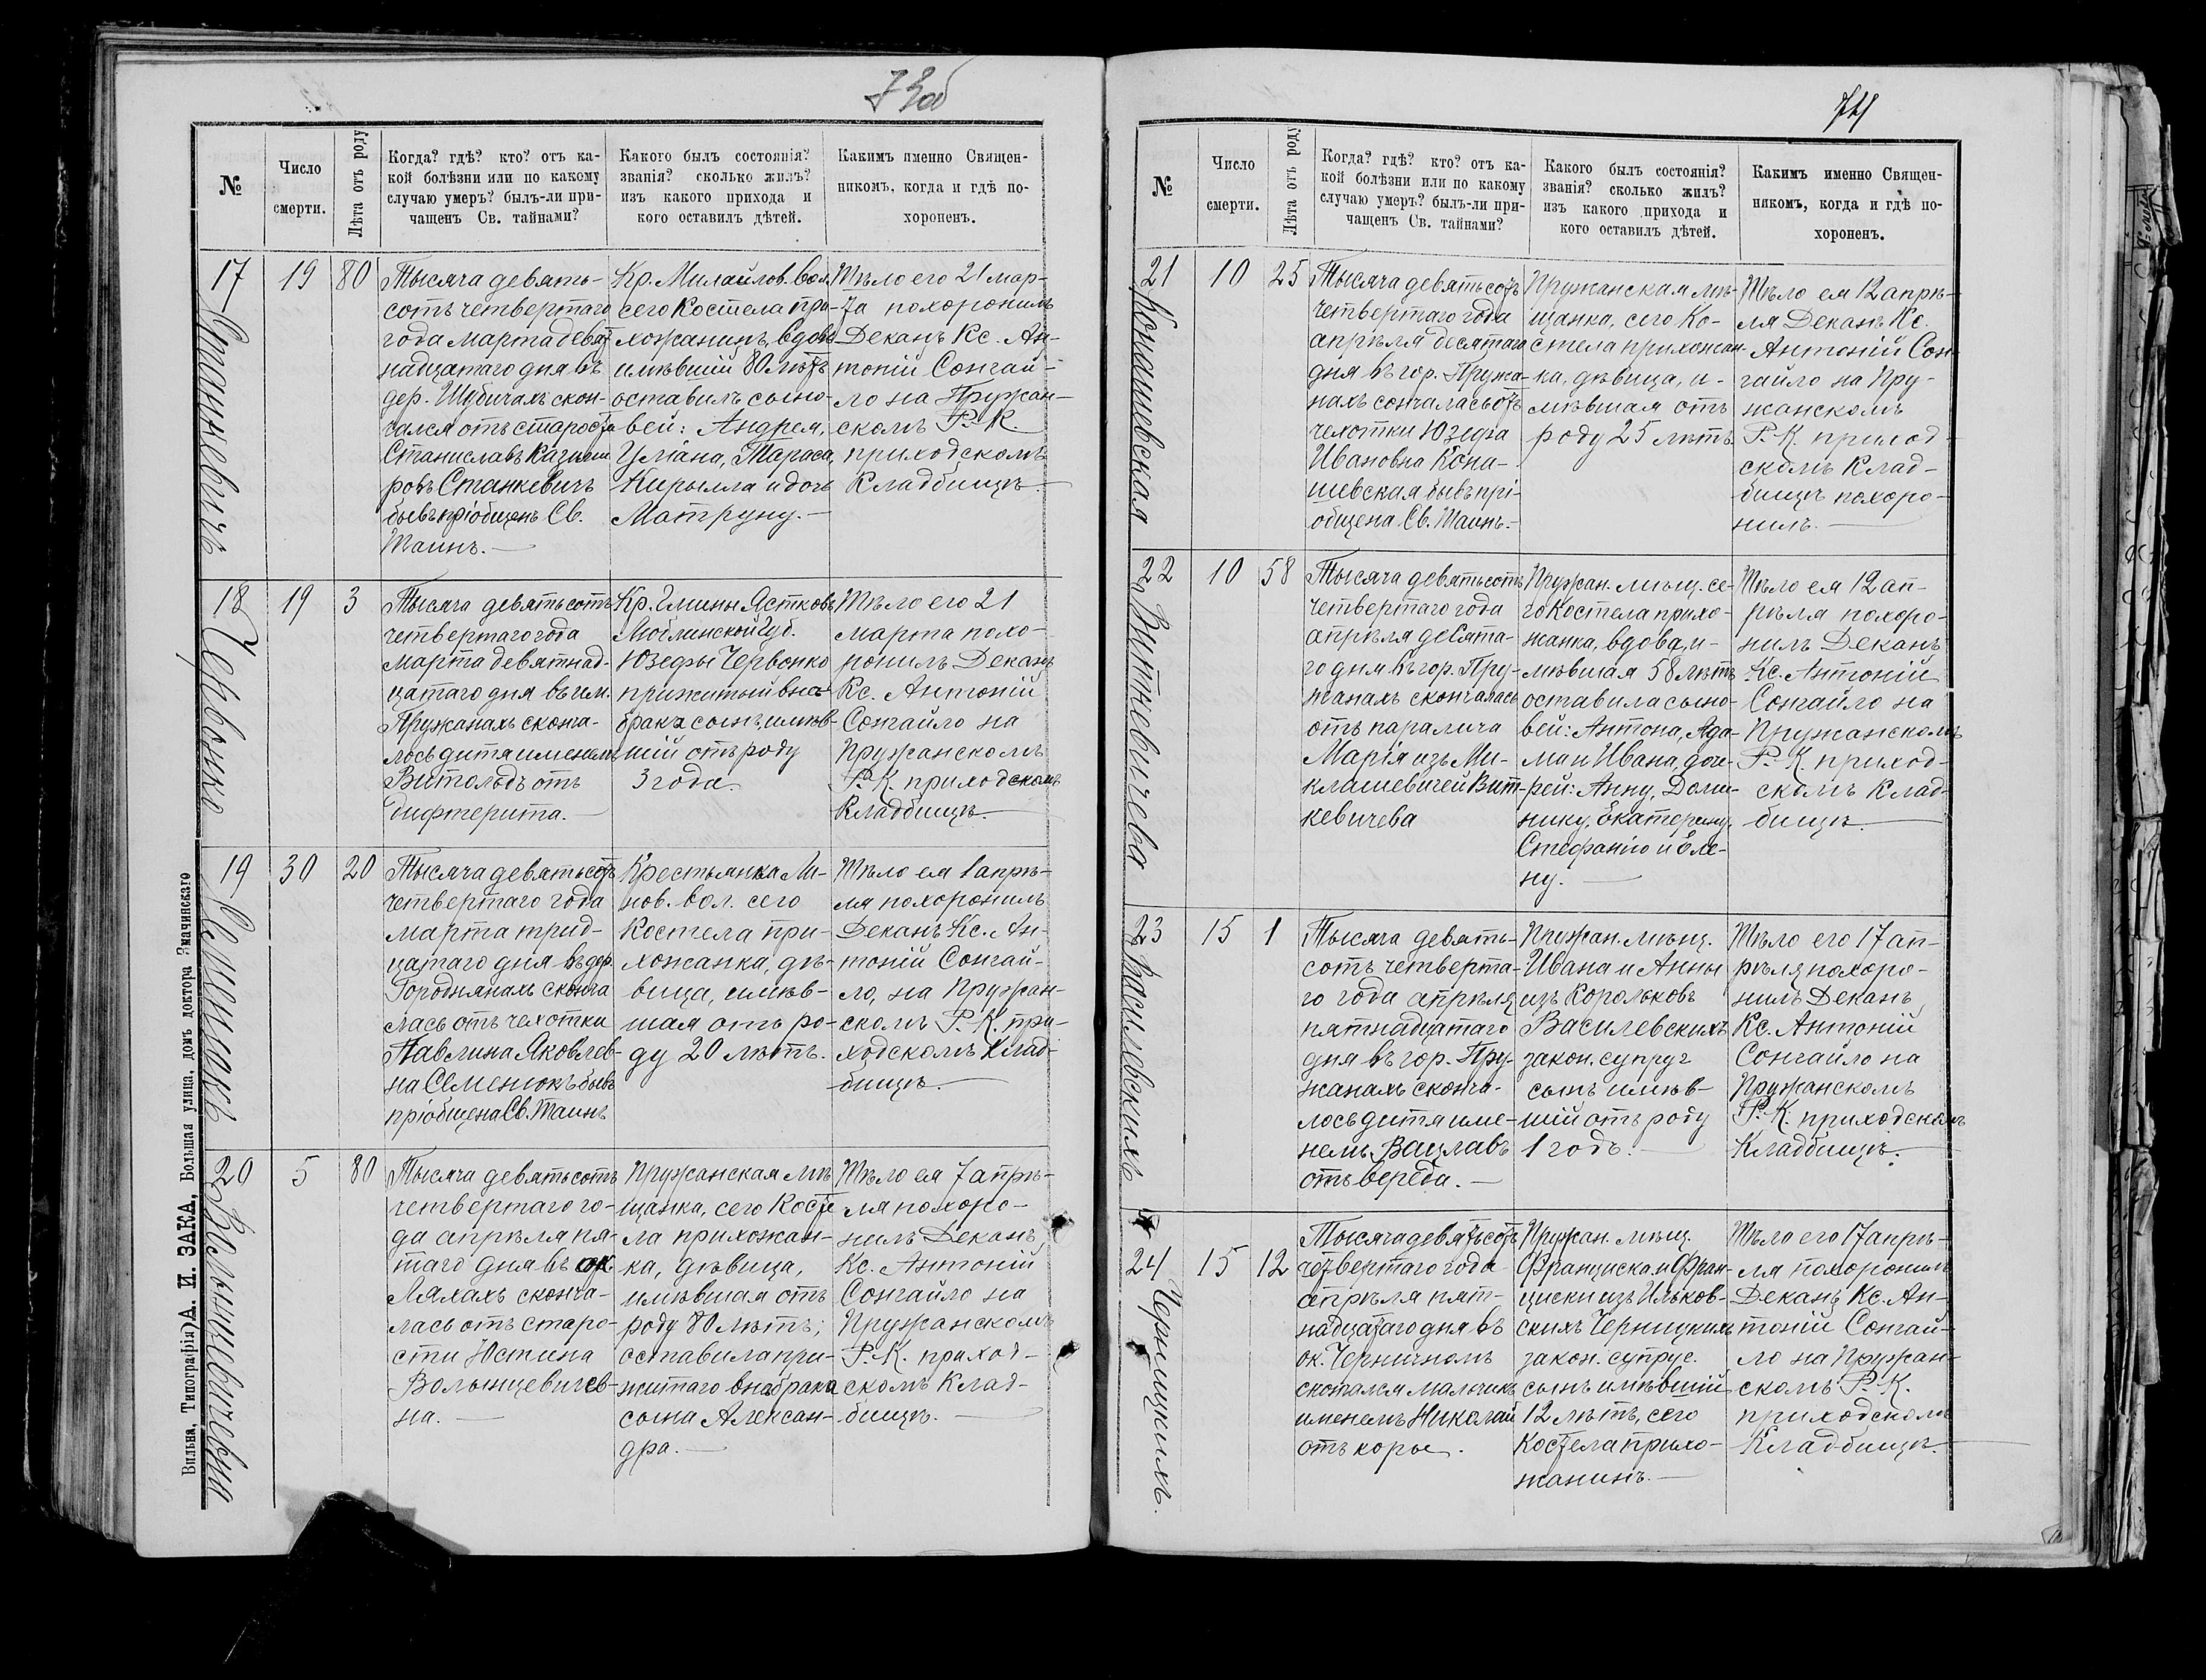 73об
№
Число
смерти.
Лѣта отъ роду
Когда? гдѣ? кто? отъ ка-
кой болѣзни или по какому
случаю умеръ? былъ-ли при-
чащенъ Св. тайнами?
Какого былъ состоянія?
званія? сколько жилъ?
изъ какого прихода и
кого оставилъ дѣтей.
Какимъ именно Священ-
никомъ, когда и гдѣ по-
хороненъ.
17
Станкевичъ
19
80
Тысяча девять-
сотъ четвертаго
года марта девят
надцатаго дня въ
дер. Шубичахъ скон-
чался отъ старости
Станиславъ Казими
ровъ Станкевичъ
бывъ пріобщенъ Св.
Таинъ.
Кр. Михайлов. вол.
сего Костела при-
хожанинъ, вдовъ
имѣвшій 80 лѣтъ
оставилъ сыно-
вей: Андрея,
Уліана, Тараса,
Кирылла и дочь
Матруну.
Тѣло его 21 мар-
та похоронилъ
Деканъ Кс. Ан-
тоній Сонгай-
ло на Пружан-
скомъ Р. К.
приходскомъ
Кладбищѣ.
18
Червонко
19
3
Тысяча девятьсотъ
четвертаго года
марта девятнад-
цатаго дня въ им.
Пружанахъ сконча-
лось дитя именемъ
Витольдъ отъ
дифтерита.
Кр. Гмины Ястковъ
Люблинской Губ.
Юзефы Червонко
прижитый внѣ
брака сынъ, имѣв-
шій отъ роду
3 года.
Тѣло его 21
марта похо-
ронилъ Деканъ
Кс. Антоній
Сонгайло на
Пружанскомъ
Р. К. приходскомъ
Кладбищѣ.
19
Семенюкъ
30
20
Тысяча девятьсотъ
четвертаго года
марта трид-
цатаго дня въ дер.
Городнянахъ сконча
лась отъ чехотки
Павлина Яковлев-
на Семенюкъ бывъ
пріобщена Св. Таинъ
Крестьянка Ли-
нов. вол. сего
Костела при-
хожанка, дѣ-
вица, имѣв-
шая отъ ро-
ду 20 лѣтъ.
Тѣло ея 1 апрѣ-
ля похоронилъ
Деканъ Кс. Ан-
тоній Сонгай-
ло, на Пружан-
скомъ Р. К. при-
ходскомъ Клад-
бищѣ.
20
Волынцевичевна
5
80
Тысяча девятьсотъ
четвертаго го-
да апрѣля пя-
таго дня въ ок.
Ляхахъ сконча-
лась отъ старо-
сти Юстина
Волынцевичев-
на.
Пружанская мѣ
щанка, сего Косте
ла прихожан-
ка, дѣвица,
имѣвшая отъ
роду 80 лѣтъ;
оставила при-
житаго внѣ брака
сына Алексан-
дра.
Тѣло ея 7 апрѣ-
ля похоро-
нилъ Деканъ
Кс. Антоній
Сонгайло на
Пружанскомъ
Р. К. приход-
скомъ Клад-
бищѣ.
Вильна, Типографія А. И. ЗАКА, Большая улица, домъ доктора Змачинскаго
74
№
Число
смерти.
Лѣта отъ роду
Когда? гдѣ? кто? отъ ка-
кой болѣзни или по какому
случаю умеръ? былъ-ли при-
чащенъ Св. тайнами?
Какого былъ состоянія?
званія? сколько жилъ?
изъ какого прихода и
кого оставилъ дѣтей.
Какимъ именно Священ-
никомъ, когда и гдѣ по-
хороненъ.
21
Конашевская
10
25
Тысяча девятьсотъ
четвертаго года
апрѣля десятаго
дня въ гор. Пружа-
нахъ скончалась отъ
чехотки Юзефа
Ивановна Кона-
шевская бывъ прі-
общена Св. Таинъ.
Пружанская мѣ-
щанка, сего Ко-
стела прихожан-
ка, дѣвица, и-
мѣвшая отъ
роду 25 лѣтъ.
Тѣло ея 12 апрѣ-
ля Деканъ Кс.
Антоній Сон-
гайло на Пру-
жанскомъ
Р. К. приход-
скомъ Клад-
бищѣ похоро-
нилъ.
22
Виткевичева
10
58
Тысяча девятьсотъ
четвертаго года
апрѣля десята-
го дня въ гор. Пру-
жанахъ скончалась
отъ паралича
Марія изъ Ми-
клашевичей Вит-
кевичева
Пружан. мѣщ. се-
го Костела прихо-
жанка, вдова, и-
мѣвшая 58 лѣтъ
оставила сыно-
вей: Антона, Ада-
ма и Ивана, доче-
рей: Анну, Доми-
нику, Екатерину,
Стефанію и Еле-
ну.
Тѣло ея 12 ап-
рѣля похоро-
нилъ Деканъ
Кс. Антоній
Сонгайло на
Пружанскомъ
Р. К. приход-
скомъ Клад-
бищѣ.
23
Василевскихъ
15
1
Тысяча девять-
сотъ четверта-
го года апрѣля
пятнадцатаго
дня въ гор. Пру-
жанахъ сконча-
лось дитя име-
немъ Вацлавъ
отъ вереда.
Пружан. мѣщ.
Ивана и Анны
изъ Корольковъ
Василевскихъ
закон. супруг
сынъ имѣв-
шій отъ роду
1 годъ.
Тѣло его 17 ап-
рѣля похоро-
нилъ Деканъ
Кс. Антоній
Сонгайло на
Пружанскомъ
Р. К. приходскомъ
Кладбищѣ.
24
Черницкихъ.
15
12
Тысяча девятьсотъ
четвертаго года
апрѣля пят-
надцатаго дня въ
ок. Черничномъ
скончался мальчикъ
именемъ Николай
отъ коры.
Пружан. мѣщ.
Франциска и Фран-
циски изъ Ильков-
скихъ Черницкихъ
закон. супруг.
сынъ имѣвшій
12 лѣтъ, сего
Костела прихо-
жанинъ.
Тѣло его 17 апрѣ-
ля похоронилъ
Деканъ Кс. Ан-
тоній Сонгай-
ло на Пружан-
скомъ Р. К.
приходскомъ
Кладбищѣ.